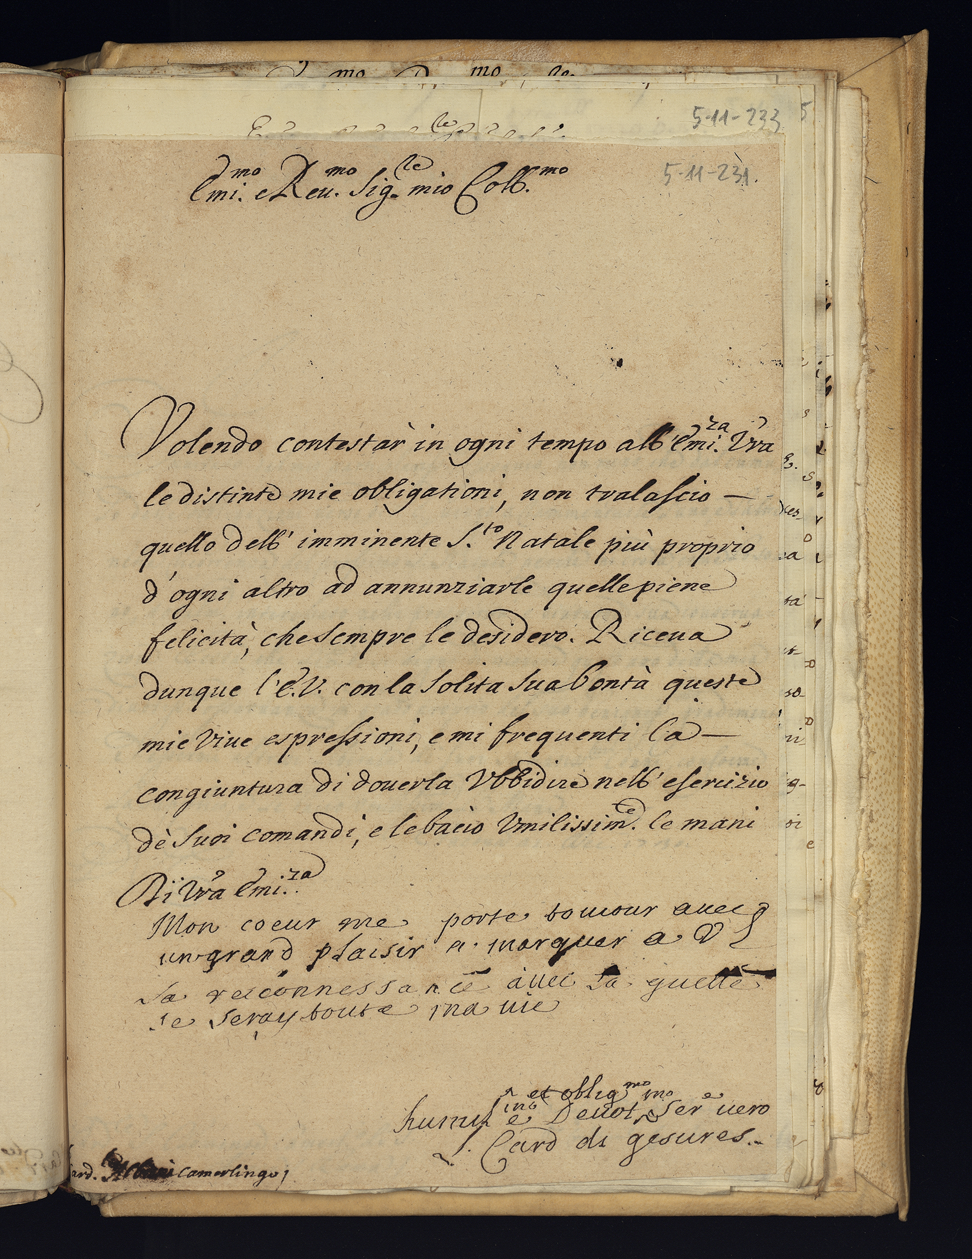 5-11-233
5-11-231.
Emi.mo e Reu.mo Sig.re mio Coll.mo
Volendo contestar in ogni tempo all' Emi.za Vra
le distinte mie obligationi, non tralascio —
quello dell' imminente S.to Natale più proprio
d'ogni altro ad annunziarle quelle piene
felicità, che sempre le desidero. Riceua
dunque l'E.V. con la solita sua bontà queste
mie viue espressioni, e mi frequenti la —
congiuntura di douerla Vbbidire nell' esercizio
dè suoi comandi, e le bacio Vmilissim.te le mani
Di Vra Emi.za
Mon coeur me porte toujour auec
un grand plaisir a marquer a V E
sa reconnessance auec la quelle
je seray toute ma vie
et oblig.mo
hum.mo e Deuot.mo Ser.e vero
Card di gesures.
ard. Albani Camerlingo